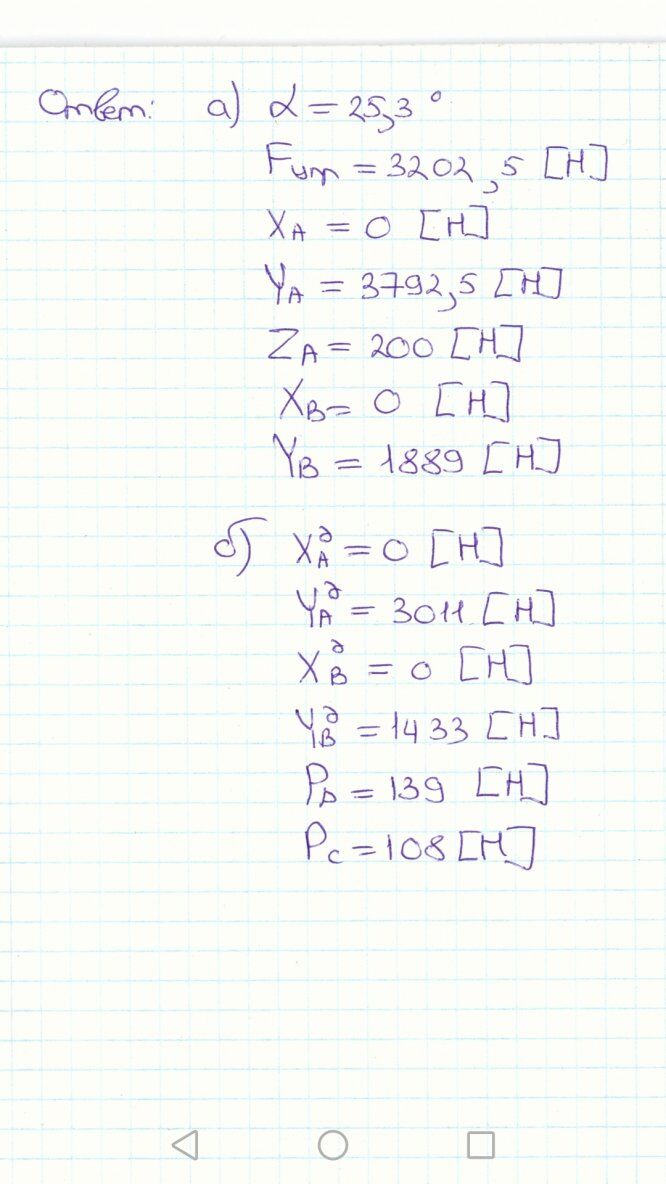 Ответ: а) α = 25,3°
Fупр = 3202,5 [Н]
XA = 0 [Н]
YA = 3792,5 [Н]
ZA = 200 [Н]
XB = 0 [Н]
YB = 1889 [Н]
б) XAд = 0 [Н]
YAд = 3011 [Н]
XBд = 0 [Н]
YBд = 1433 [Н]
PD = 139 [Н]
PC = 108 [Н]